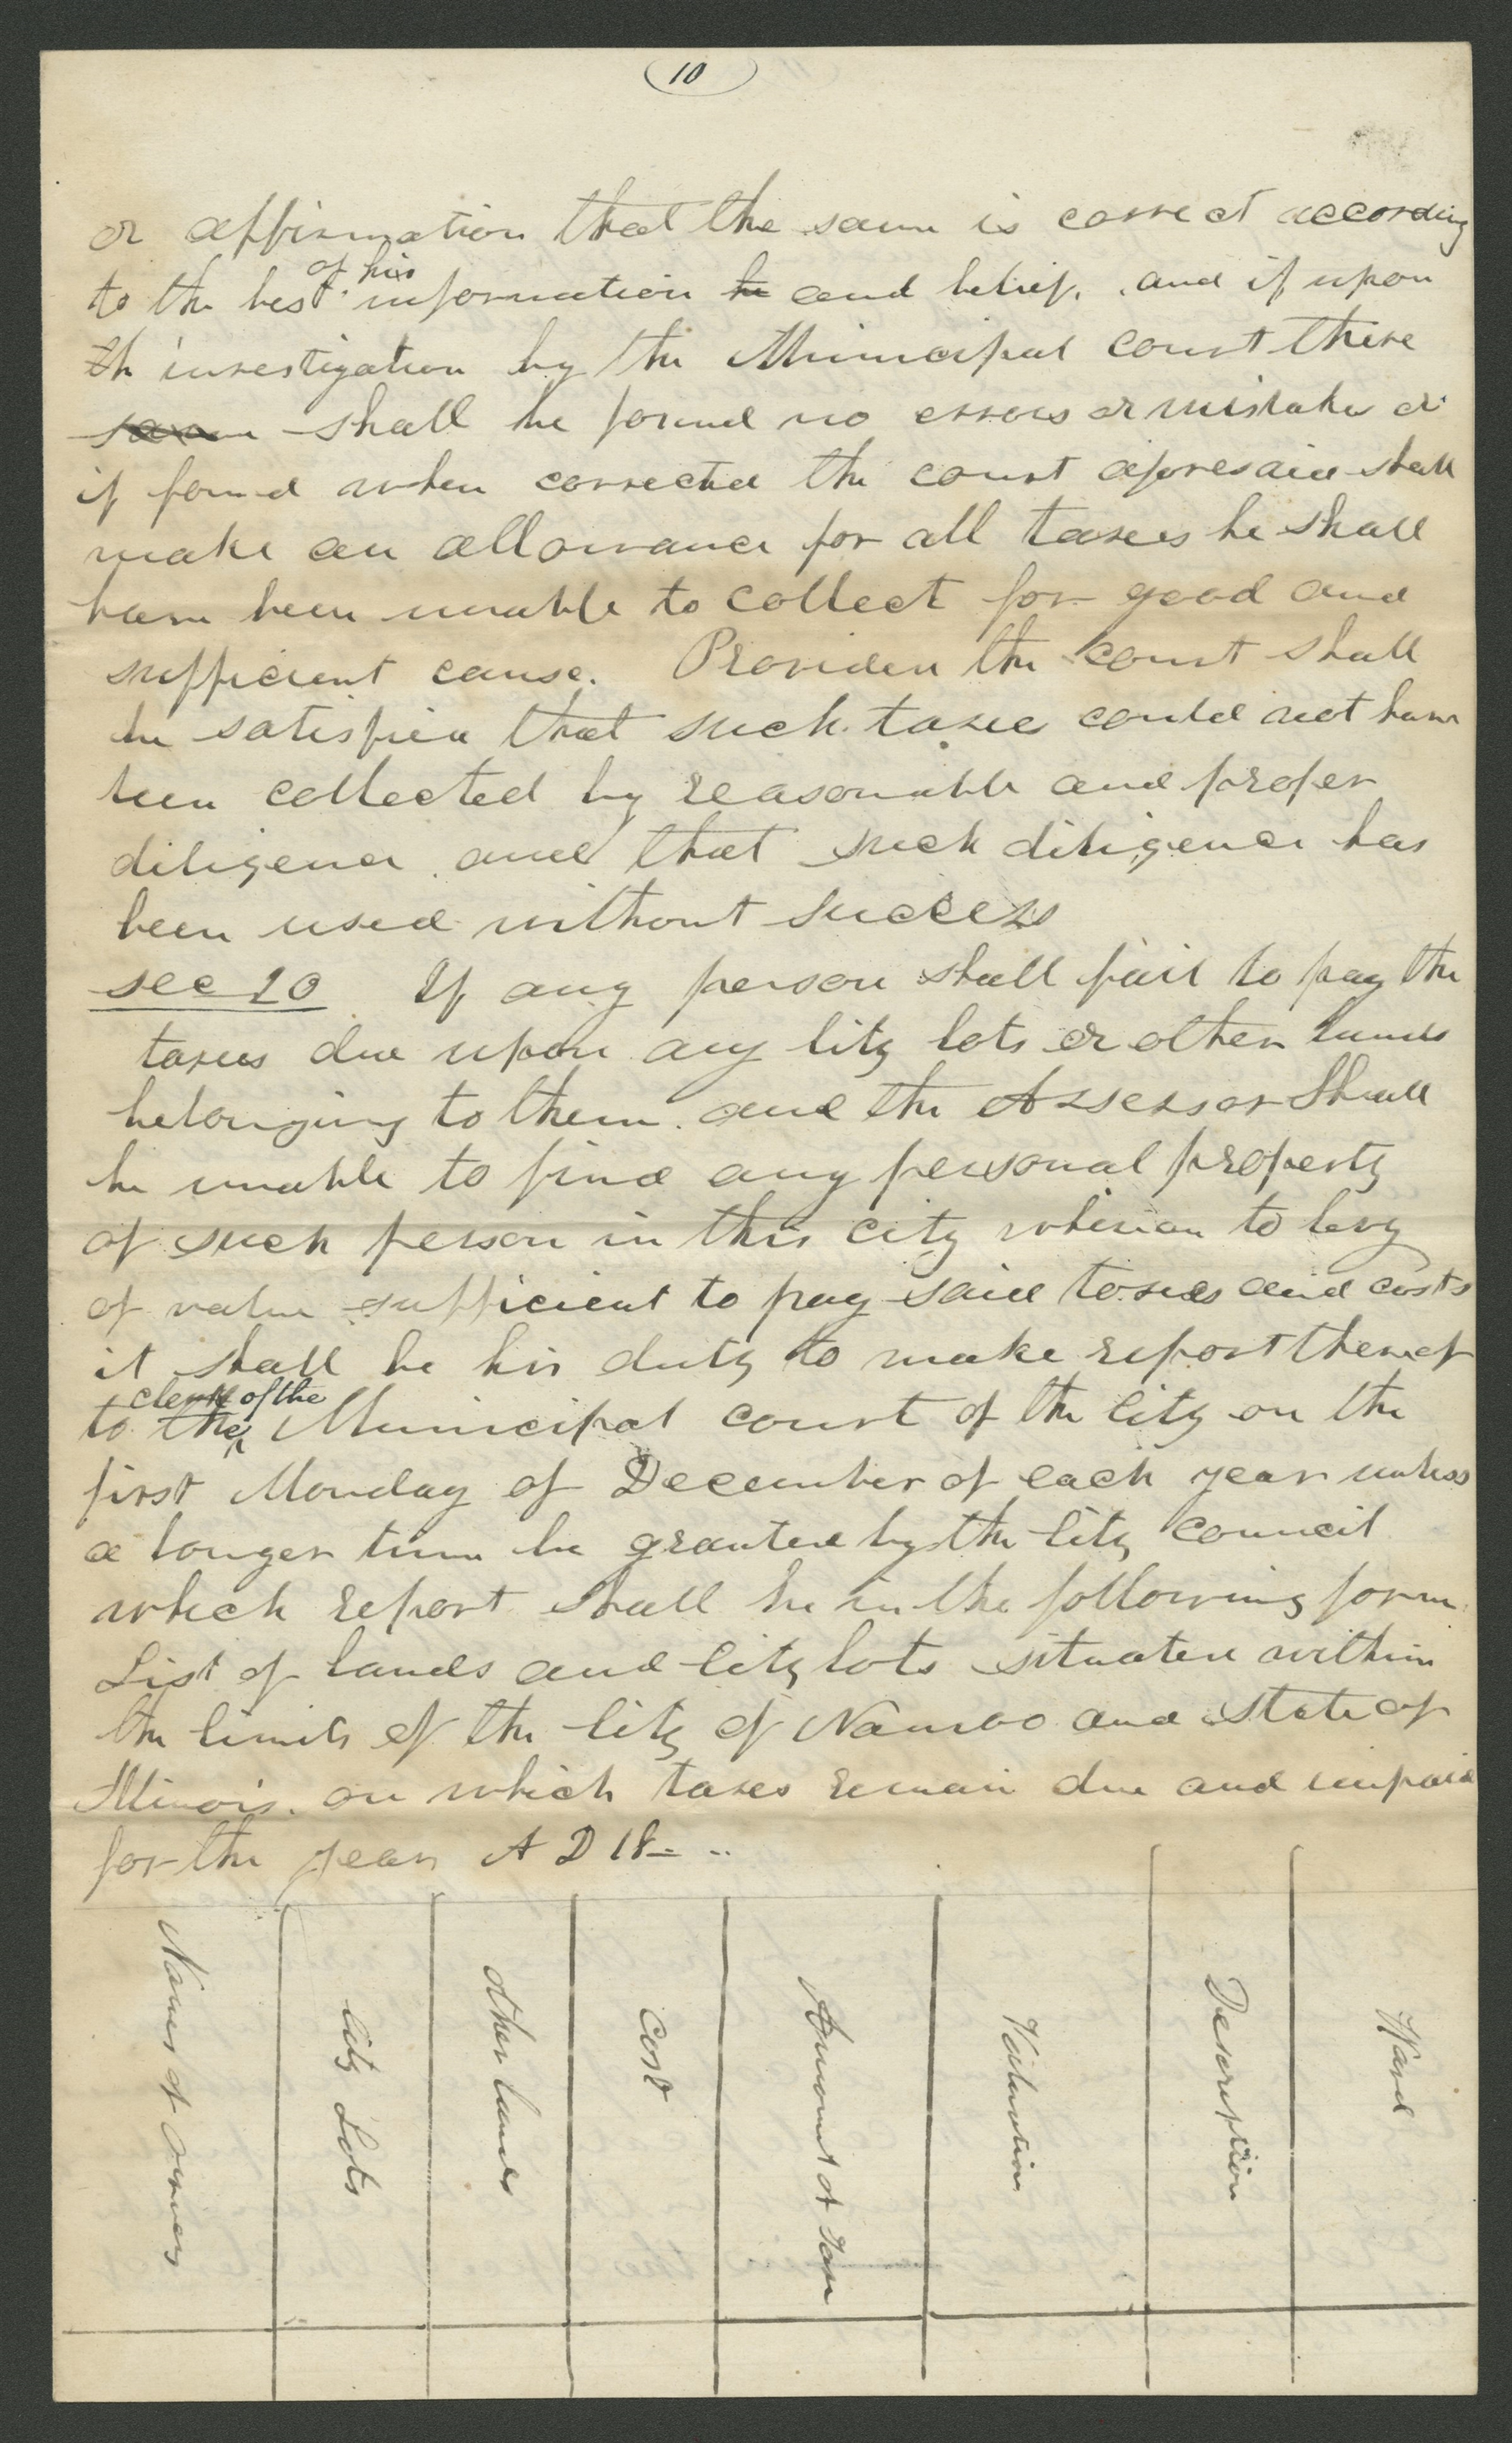 10
or affirmation that the same is correct according
to the best of his information he and belief. and if upon
th investigation by the Municipal court there
same shall be found no errors or mistakes or
if found when corrected the court aforesaid shall
make an allowance for all taxes he shall
have been unable to collect for good and
sufficient cause. Provided the court shall
be satisfied that such taxes could not have
been collected by reasonable and proper
diligence and that such diligence has
been used without success
sec 10 If any person shall fail to pay the
taxes due upon any City lots or other lands
belonging to them. and the Assessor Shall
be unable to find any personal property
of such person in this city whereon to levy
of value sufficient to pay said taxes and costs
it shall be his duty to make report thereof
to the clerk of the Municipal court of the City on the
first Monday of December of each year unless
a longer time be granted by the City Council
which report shall be in the following form
List of lands and City lots situated within
the limits of the City of Nauvoo and State of
Illinois. on which taxes remain due and unpaid
for the year A D 18-- ..
Names of owners
City Lots
other lands
Cost
Amount of Tax
Valuation
Description
Ward